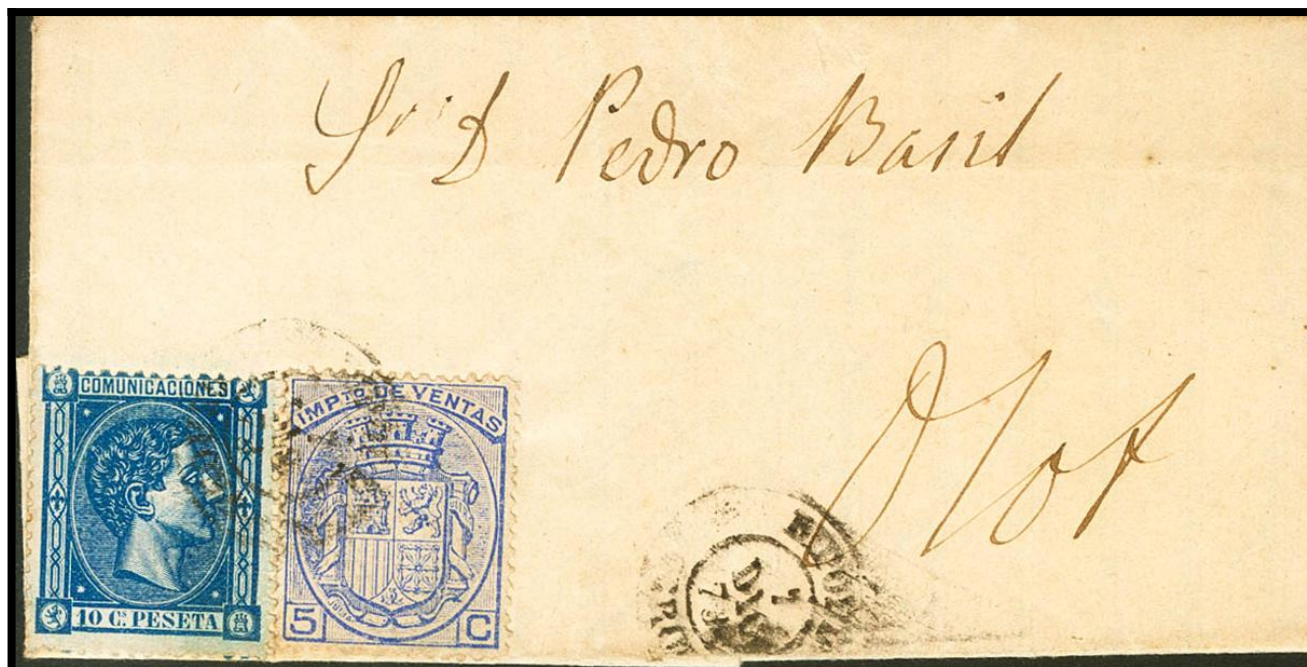 Sr D Pedro Basil
Olot
COMUNICACIONES
10 Cs PESETA
IMPTO DE VENTAS
5 C
1
DIC